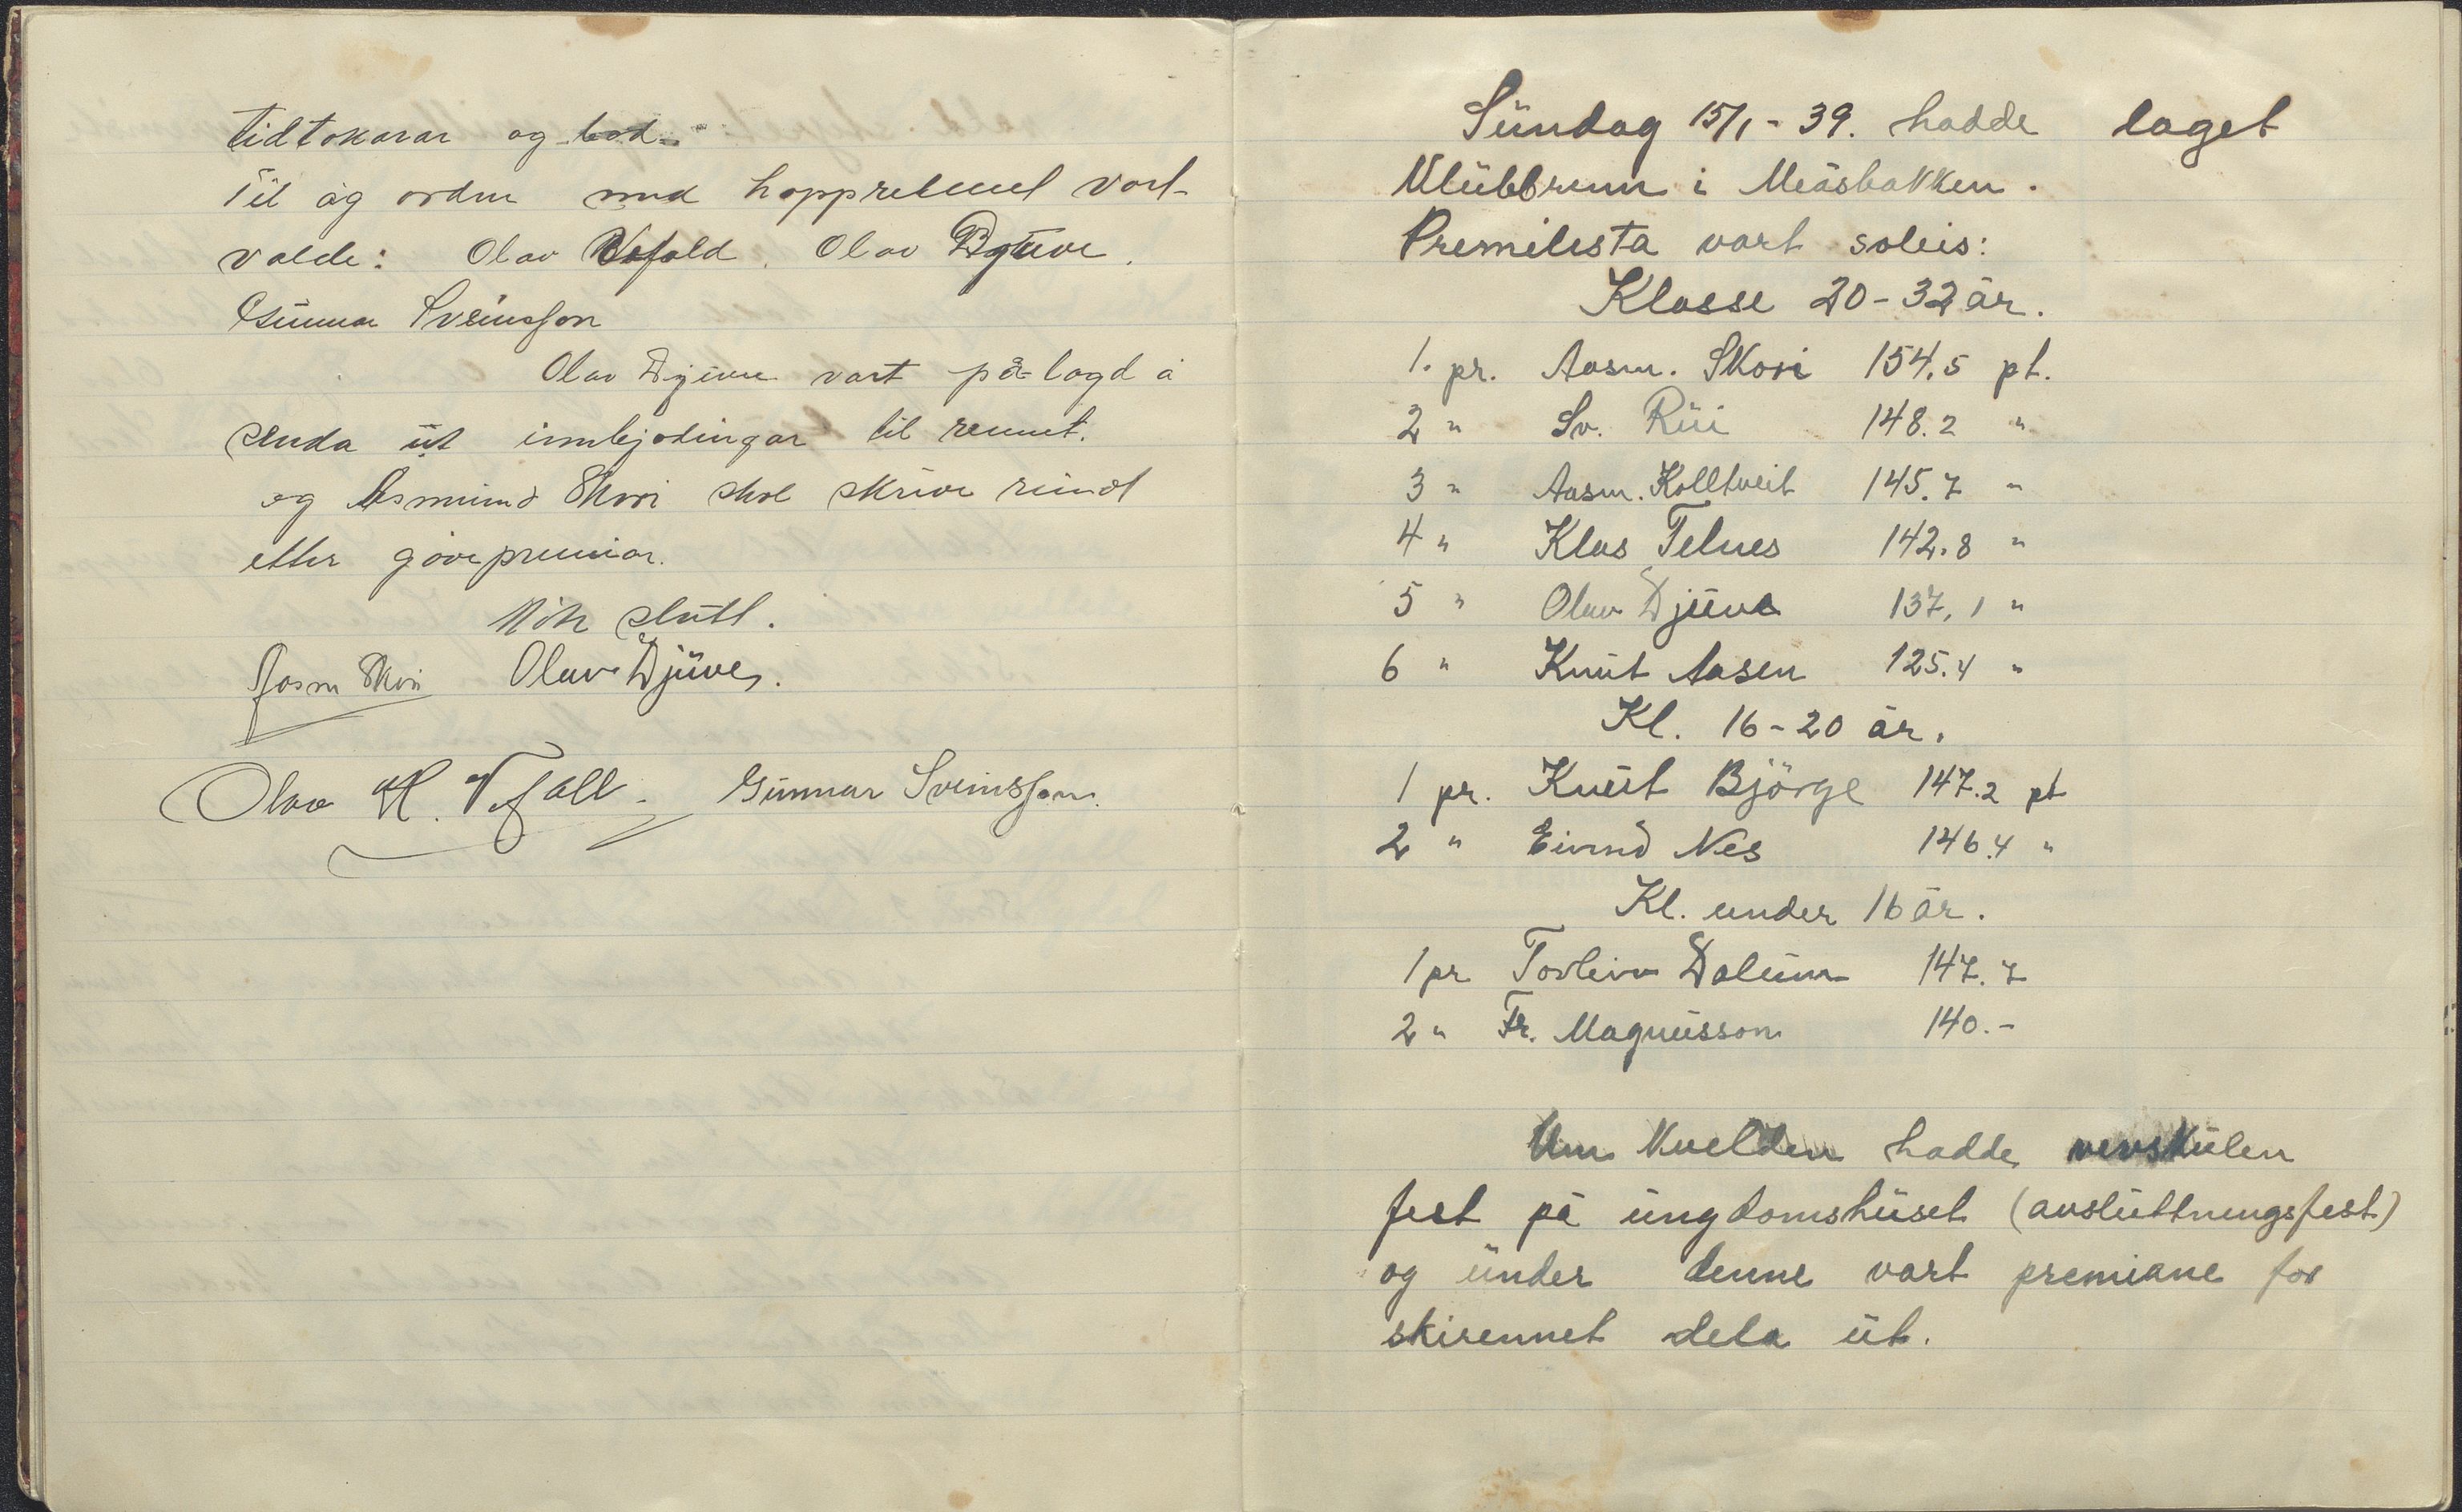 tidtakarar og
Til åg ordne med hopprennet vart
valde: Olav Vefald. Olav Djuve.
Gunnar Sveinsson
Olav Djuve vart på-lagd å
senda ut innbjodingar til rennet.
og Asmund Skori skal skrive rundt
etter gåvepremiar.
Möte slutt.
Aasm Skori Olav Djuve.
Olav H. Vefall. Gunnar Sveinsson.
Sundag 15/1-39. hadde laget
Klubbrenn i Meåsbakken.
Premilista vart soleis:
Klasse 20-32 år.
1. pr. Aasm. Skori 154,5 pt.
2 " Sv. Rui 148.2 "
3 " Aasm. Kolltveit 145.7 "
4 " Klas Telnes 142.8 "
5 " Olav Djuve 137,1 "
6 " Knut Aasen 125.4 "
Kl. 16-20 år.
1 pr. Knut Björge 147.2 pt
2 " Eivind Nes 146.4 "
Kl. under 16 år.
1 pr Torleiv Dalum 147.7
2 " Fr. Magnusson 140.-
Um Kvelden hadde vevskulen
fest på ungdomshuset (avsluttningsfest)
og under denne vart premiane for
skirennet dela ut.